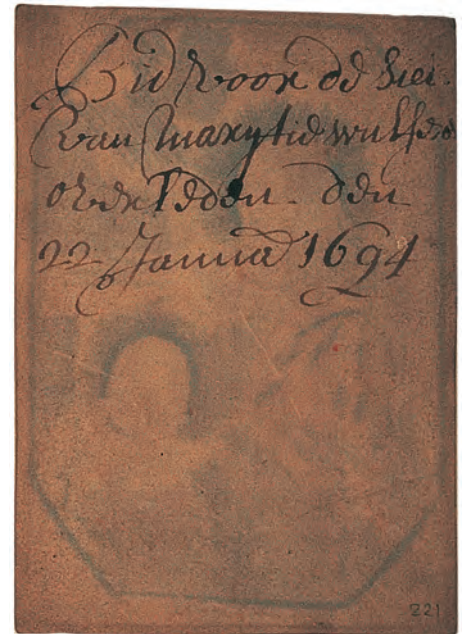 Bid voor de siel
van Marytie wulfse
overleden. den
22 Janua 1694
221